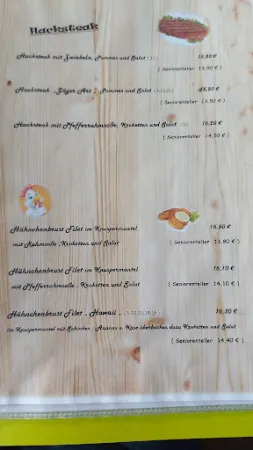 Hacksteak
Hacksteak mit Zwiebeln, Pommes und Salat
( Seniorenteller
Hacksteak „Jäger Art", Pommes und Salat
( Seniorenteller 13,50 € )
Hacksteak mit Pfefferrahmsoße, Kroketten und Salat
( Seniorenteller 14,50 € )
Hähnchenbrust Filet im Knuspermantel 15,80 €
mit Rahmsoße, Kroketten und Salat ( Seniorenteller 13,80 € )
Hähnchenbrust Filet im Knuspermantel 16,10 €
mit Pfefferrahmsoße, Kroketten und Salat ( Seniorenteller 14,10 € )
Hähnchenbrust Filet „Hawaii" 16,50 €
im Knuspermantel mit Schinken, Ananas u. Käse überbacken dazu Kroketten und Salat
( Seniorenteller 14,40 € )